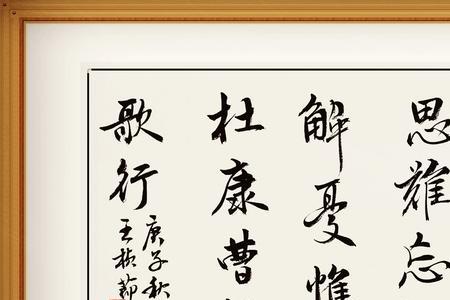 思難忘
解憂惟
杜康曹
歌行
庚子秋
王